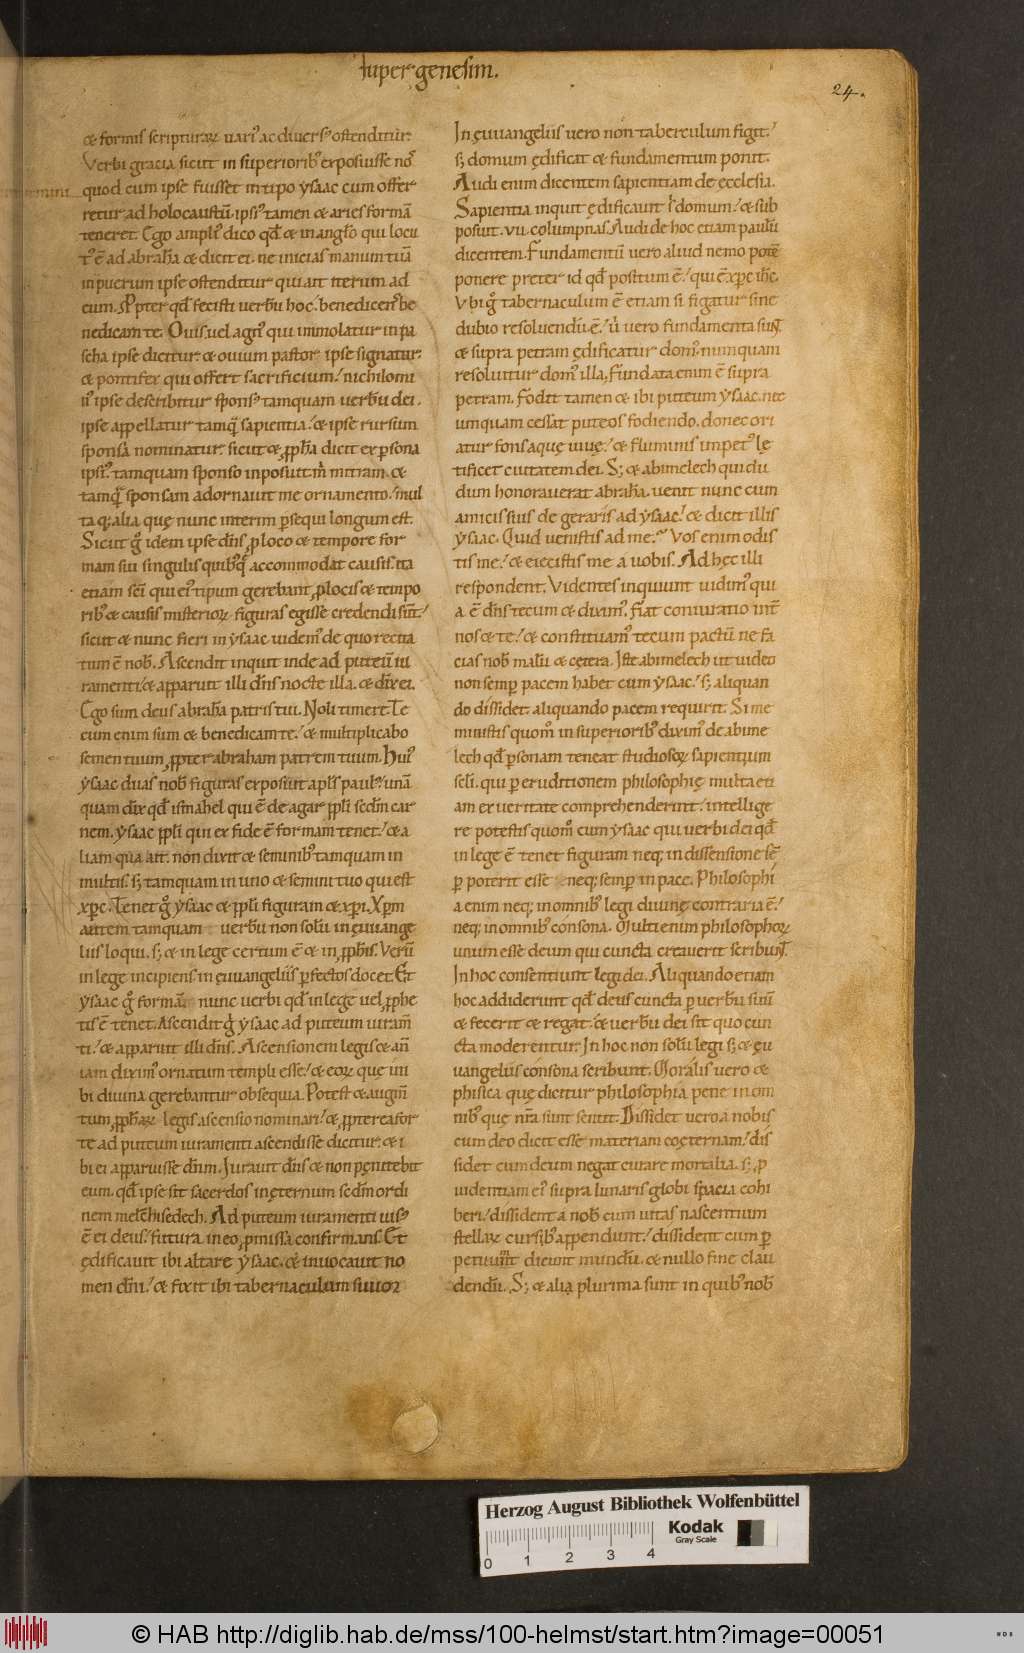 super genesim.
24.
& formis scripturaꝝ uariꝰ ac diuersꝰ ostenditur.
Verbi gracia sicut in superioribꝰ exposuisse nos
quod cum ipse fuisset in tipo ysaac cum offer
retur ad holocaustū. ipsiꝰ tamen & aries formā
teneret. Ego ampliꝰ dico qđ & in angl̄o qui locu
tꝰ ē ad abrahā & dicit ei. ne inicias manum tuā
in puerum ipse ostenditur qui ait iterum ad
eum. Ꝓpter qđ fecisti uerbū hoc. benedicens be
nedicam te. Ouis uel agnꝰ qui immolatur in pa
scha ipse dicitur. & ouium pastor ipse signatur.
& pontifex qui offert sacrificium. nichilomi
nꝰ ipse describitur sponsꝰ tamquam uerbū dei.
ipse appellatur tamq̄ sapientia. & ipse rursum
sponsa nominatur. sicut & ꝓph̄a dicit ex persona
ipsiꝰ. tamquam sponso inposuit m̄ mitram. &
tamq̄ sponsam adornauit me ornamento. mul
taq; alia quę nunc interim ꝑsequi longum est.
Sicut g̊ idem ipse dn̄s ꝓ loco & tempore for
mam sui singulis quibꝰq; accommodat causis. ita
etiam sc̄i qui eiꝰ tipum gerebant ꝓ locis & tempo
ribꝰ & causis misterioꝝ figuras egisse credendi sunt.
sicut & nunc fieri in ysaac uidemꝰ de quo recita
tum ē nob̄. Ascendit inquit inde ad puteū iu
ramenti. & apparuit illi dn̄s nocte illa. & dix̄ ei.
Ego sum deus abrahā patris tui. Noli timere. Te
cum enim sum & benedicam te. & multiplicabo
semen tuum ꝓpter abraham patrem tuum. Huiꝰ
ysaac duas nob̄ figuras exposuit apl̄s paulꝰ. unā
quam dix̄ qđ ismahel qui ē de agar ꝓpl̄i sedm̄ car
nem. ysaac ꝓpl̄i qui ex fide ē formam tenet. & a
liam qua ait. non dixit & seminibꝰ tamquam in
multis. s; tamquam in uno & semini tuo qui est
xp̄c. Tenet g̊ ysaac & ꝓpl̄i figuram & xp̄i. Xp̄m
autem tamquam uerbū non solū in ęuuange
liis loqui. s; & in lege certum ē & in ꝓph̄is. Verū
in lege incipiens. in ęuuangeliis ꝑfectos docet. Et
ysaac g̊ formā nunc uerbi qđ in lege uel ꝓphe
tis ē tenet. Ascendit g̊ ysaac ad puteum iuram̄
ti. & apparuit illi dn̄s. Ascensionem legis & an̄
iam diximꝰ ornatum templi esse. & eoꝝ quę in i
bi diuina gerebantur obsequia. Potest & augm̄
tum ꝓphetaꝝ legis ascensio nominari. & ꝓpterea for
te ad puteum iuramenti ascendisse dicitur. & i
bi ei apparuisse dn̄m. Jurauit dn̄s & non pęnitebit
eum. qđ ipse sit sacerdos in ęternum sedm̄ ordi
nem melchisedech. Ad puteum iuramenti uisꝰ
ē ei deus. futura in eo ꝓmissa confirmans. Et
ędificauit ibi altare ysaac. & inuocauit no
men dn̄i. & fixit ibi tabernaculum suum.
In ęuuangeliis uero non taberculum figit.
s; domum ędificat & fundamentum ponit.
Audi enim dicentem sapientiam de ęcclesia.
Sapientia inquit ędificauit s̄ domum. & sub
posuit .vii. columpnas. Audi de hoc etiam paulū
dicentem. Fundamentū uero aliud nemo potē
ponere preter id qđ positum ē. qui ē xp̄c ih̄c.
Vbi g̊ tabernaculum ē etiam si figatur sine
dubio resoluendū ē. u͛ uero fundamenta sunt
& supra petram ędificatur domꝰ. numquam
resoluitur domꝰ illa. Fundata enim ē supra
petram. Fodit tamen & ibi puteum ysaac. nec
umquam cessat puteos fodiendo. donec ori
atur fons aquę uiuę. & fluminis impetꝰ lę
tificet ciuitatem dei. S; & abimelech qui du
dum honorauerat abrahā. uenit nunc cum
amicis suis de geraris ad ysaac. & dicit illis
ysaac. Quid uenistis ad me? Vos enim odis
tis me. & eiecistis me a uobis. Ad hęc illi
respondent. Videntes inquiunt uidimꝰ qui
a ē dn̄s tecum & diximꝰ. fiat coniuratio int̄
nos & te. & constituamꝰ tecum pactū ne fa
cias nob̄ malū & cętera. Iste abimelech ut uideo
non semꝑ pacem habet cum ysaac. s; aliquan
do dissidet. aliquando pacem requirit. Si me
ministis quom̊ in superioribꝰ diximꝰ de abime
lech qđ ꝑsonam teneat studiosoꝝ sapientium
scl̄i. qui per eruditionem philosophię multa eti
am ex ueritate comprehenderint. intellige
re potestis quom̊ cum ysaac qui uerbi dei qđ
in lege ē tenet figuram neq; in dissensione sē
ꝑ poterit esse neq; semꝑ in pace. Philosophi
a enim neq; in omnibꝰ legi diuinę contraria ē.
neq; in omnibꝰ consona. Multi enim philosophoꝝ
unum esse deum qui cuncta creauerit scribunt.
In hoc consentiunt legi dei. Aliquando etiam
hoc addiderunt qđ deus cuncta ꝑ uerbū suū
& fecerit & regat. & uerbū dei sit quo cun
cta moderentur. In hoc non solū legi s; & ęu
uangeliis consona scribunt. Moralis uero &
phisica quę dicitur philosophia pene in om
nibꝰ quę nr̄a sunt sentit. Dissidet uero a nobis
cum deo dicit esse materiam coęternam. dis
sidet cum deum negat curare mortalia. s; ꝓ
uidentiam eiꝰ supra lunaris globi spacia cohi
beri. dissident a nob̄ cum uitas nascentium
stellaꝝ cursibꝰ appendunt. dissident cum ꝑ
petuum dicunt mundū. & nullo fine clau
dendū. S; & alia plurima sunt in quibꝰ nob̄
Herzog August Bibliothek Wolfenbüttel
Kodak
Gray Scale
0 1 2 3 4
© HAB http://diglib.hab.de/mss/100-helmst/start.htm?image=00051